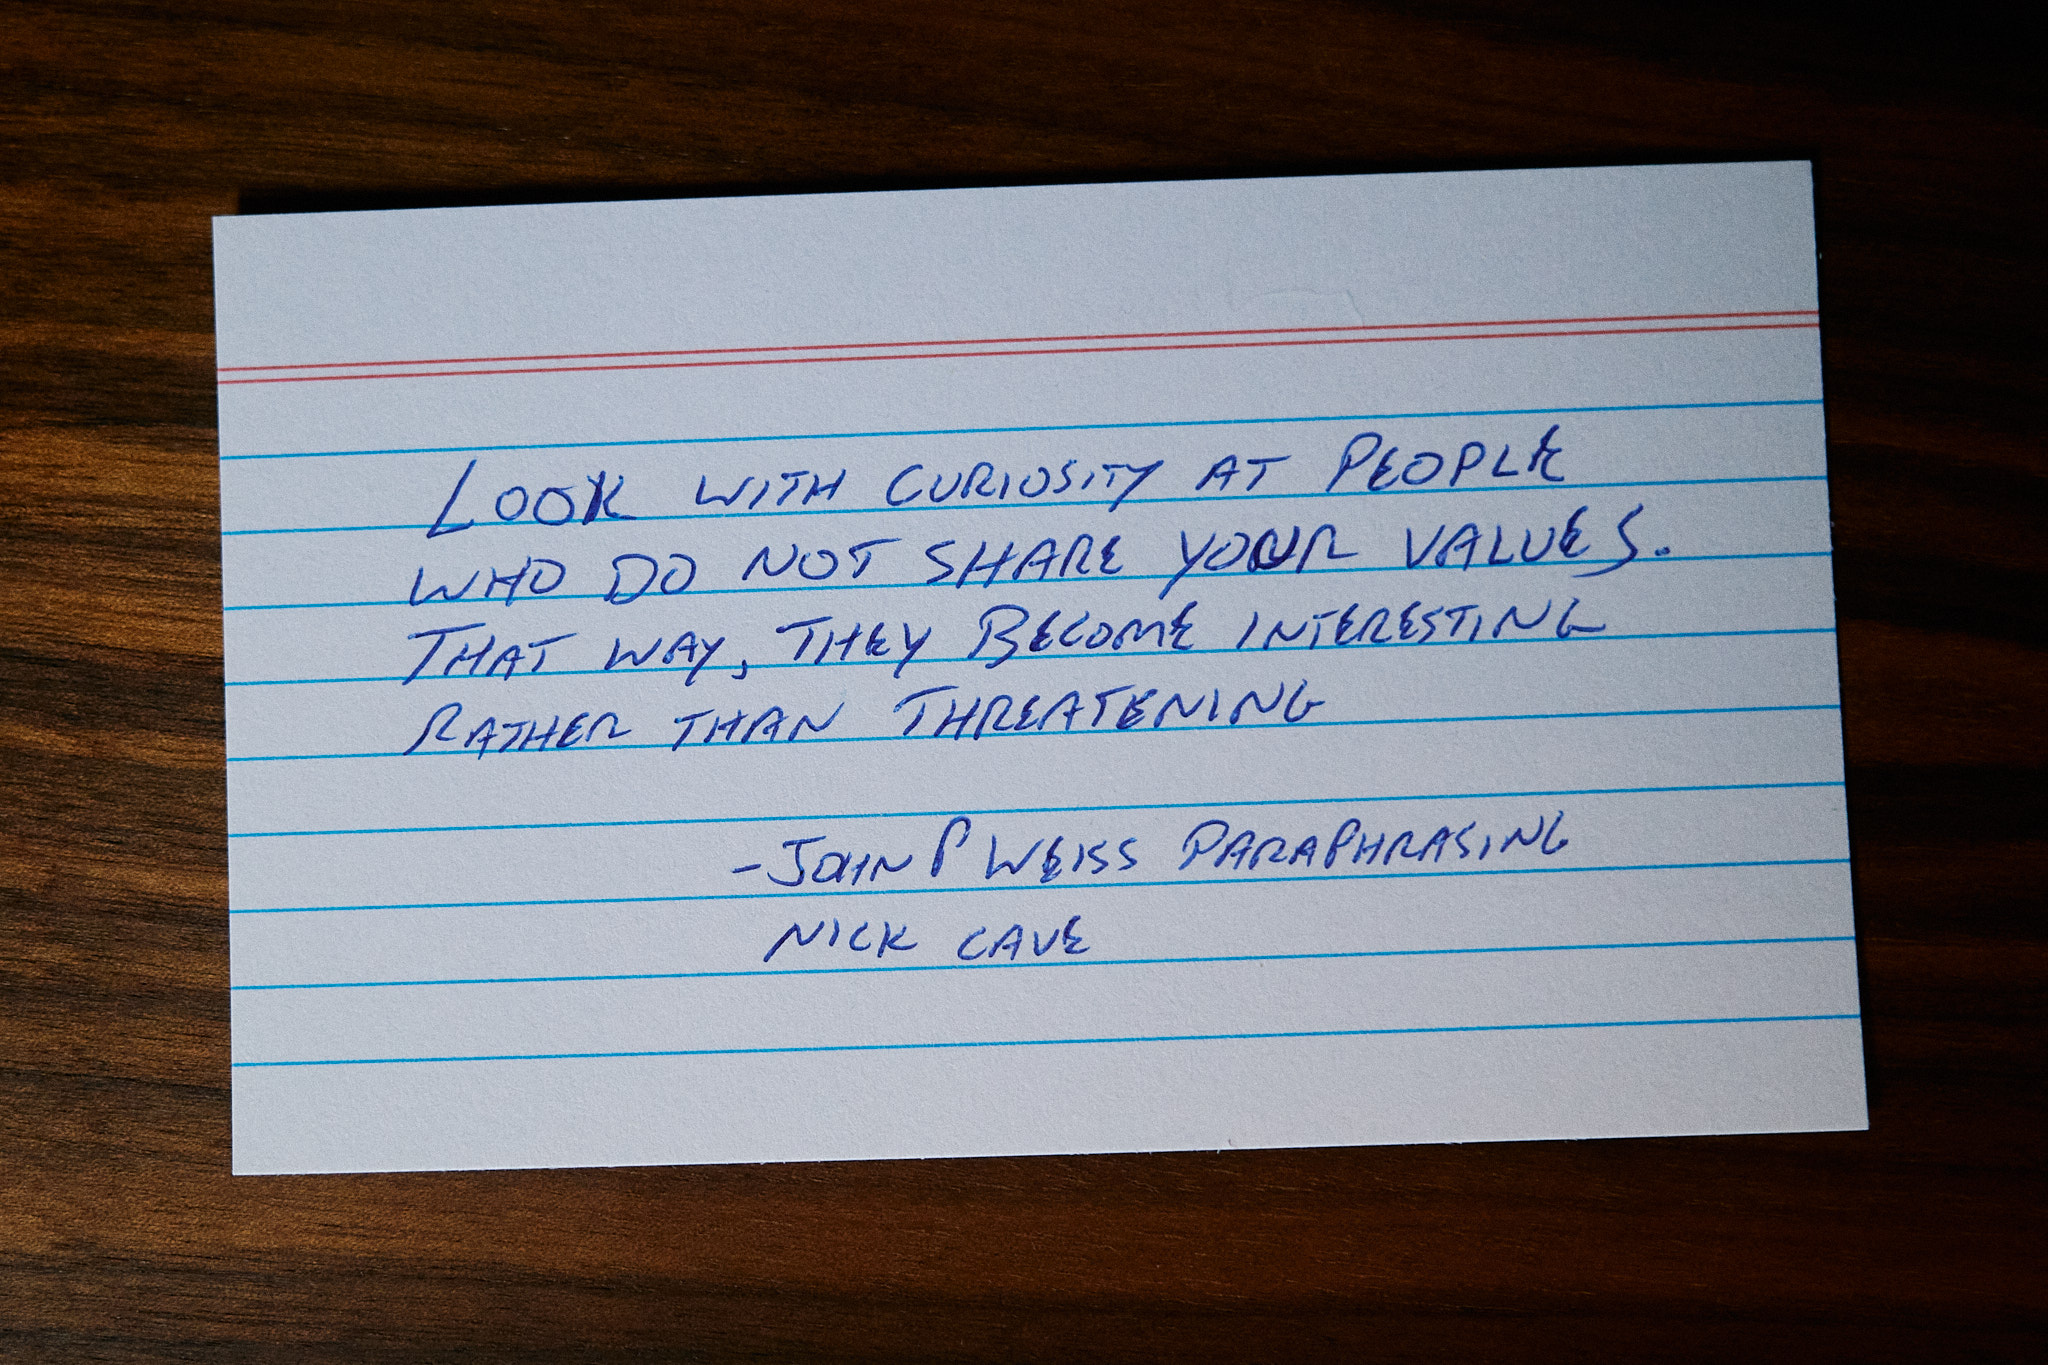 LOOK WITH CURIOSITY AT PEOPLE
WHO DO NOT SHARE YOUR VALUES.
THAT WAY, THEY BECOME INTERESTING
RATHER THAN THREATENING
-JOHN P WEISS PARAPHRASING
NICK CAVE